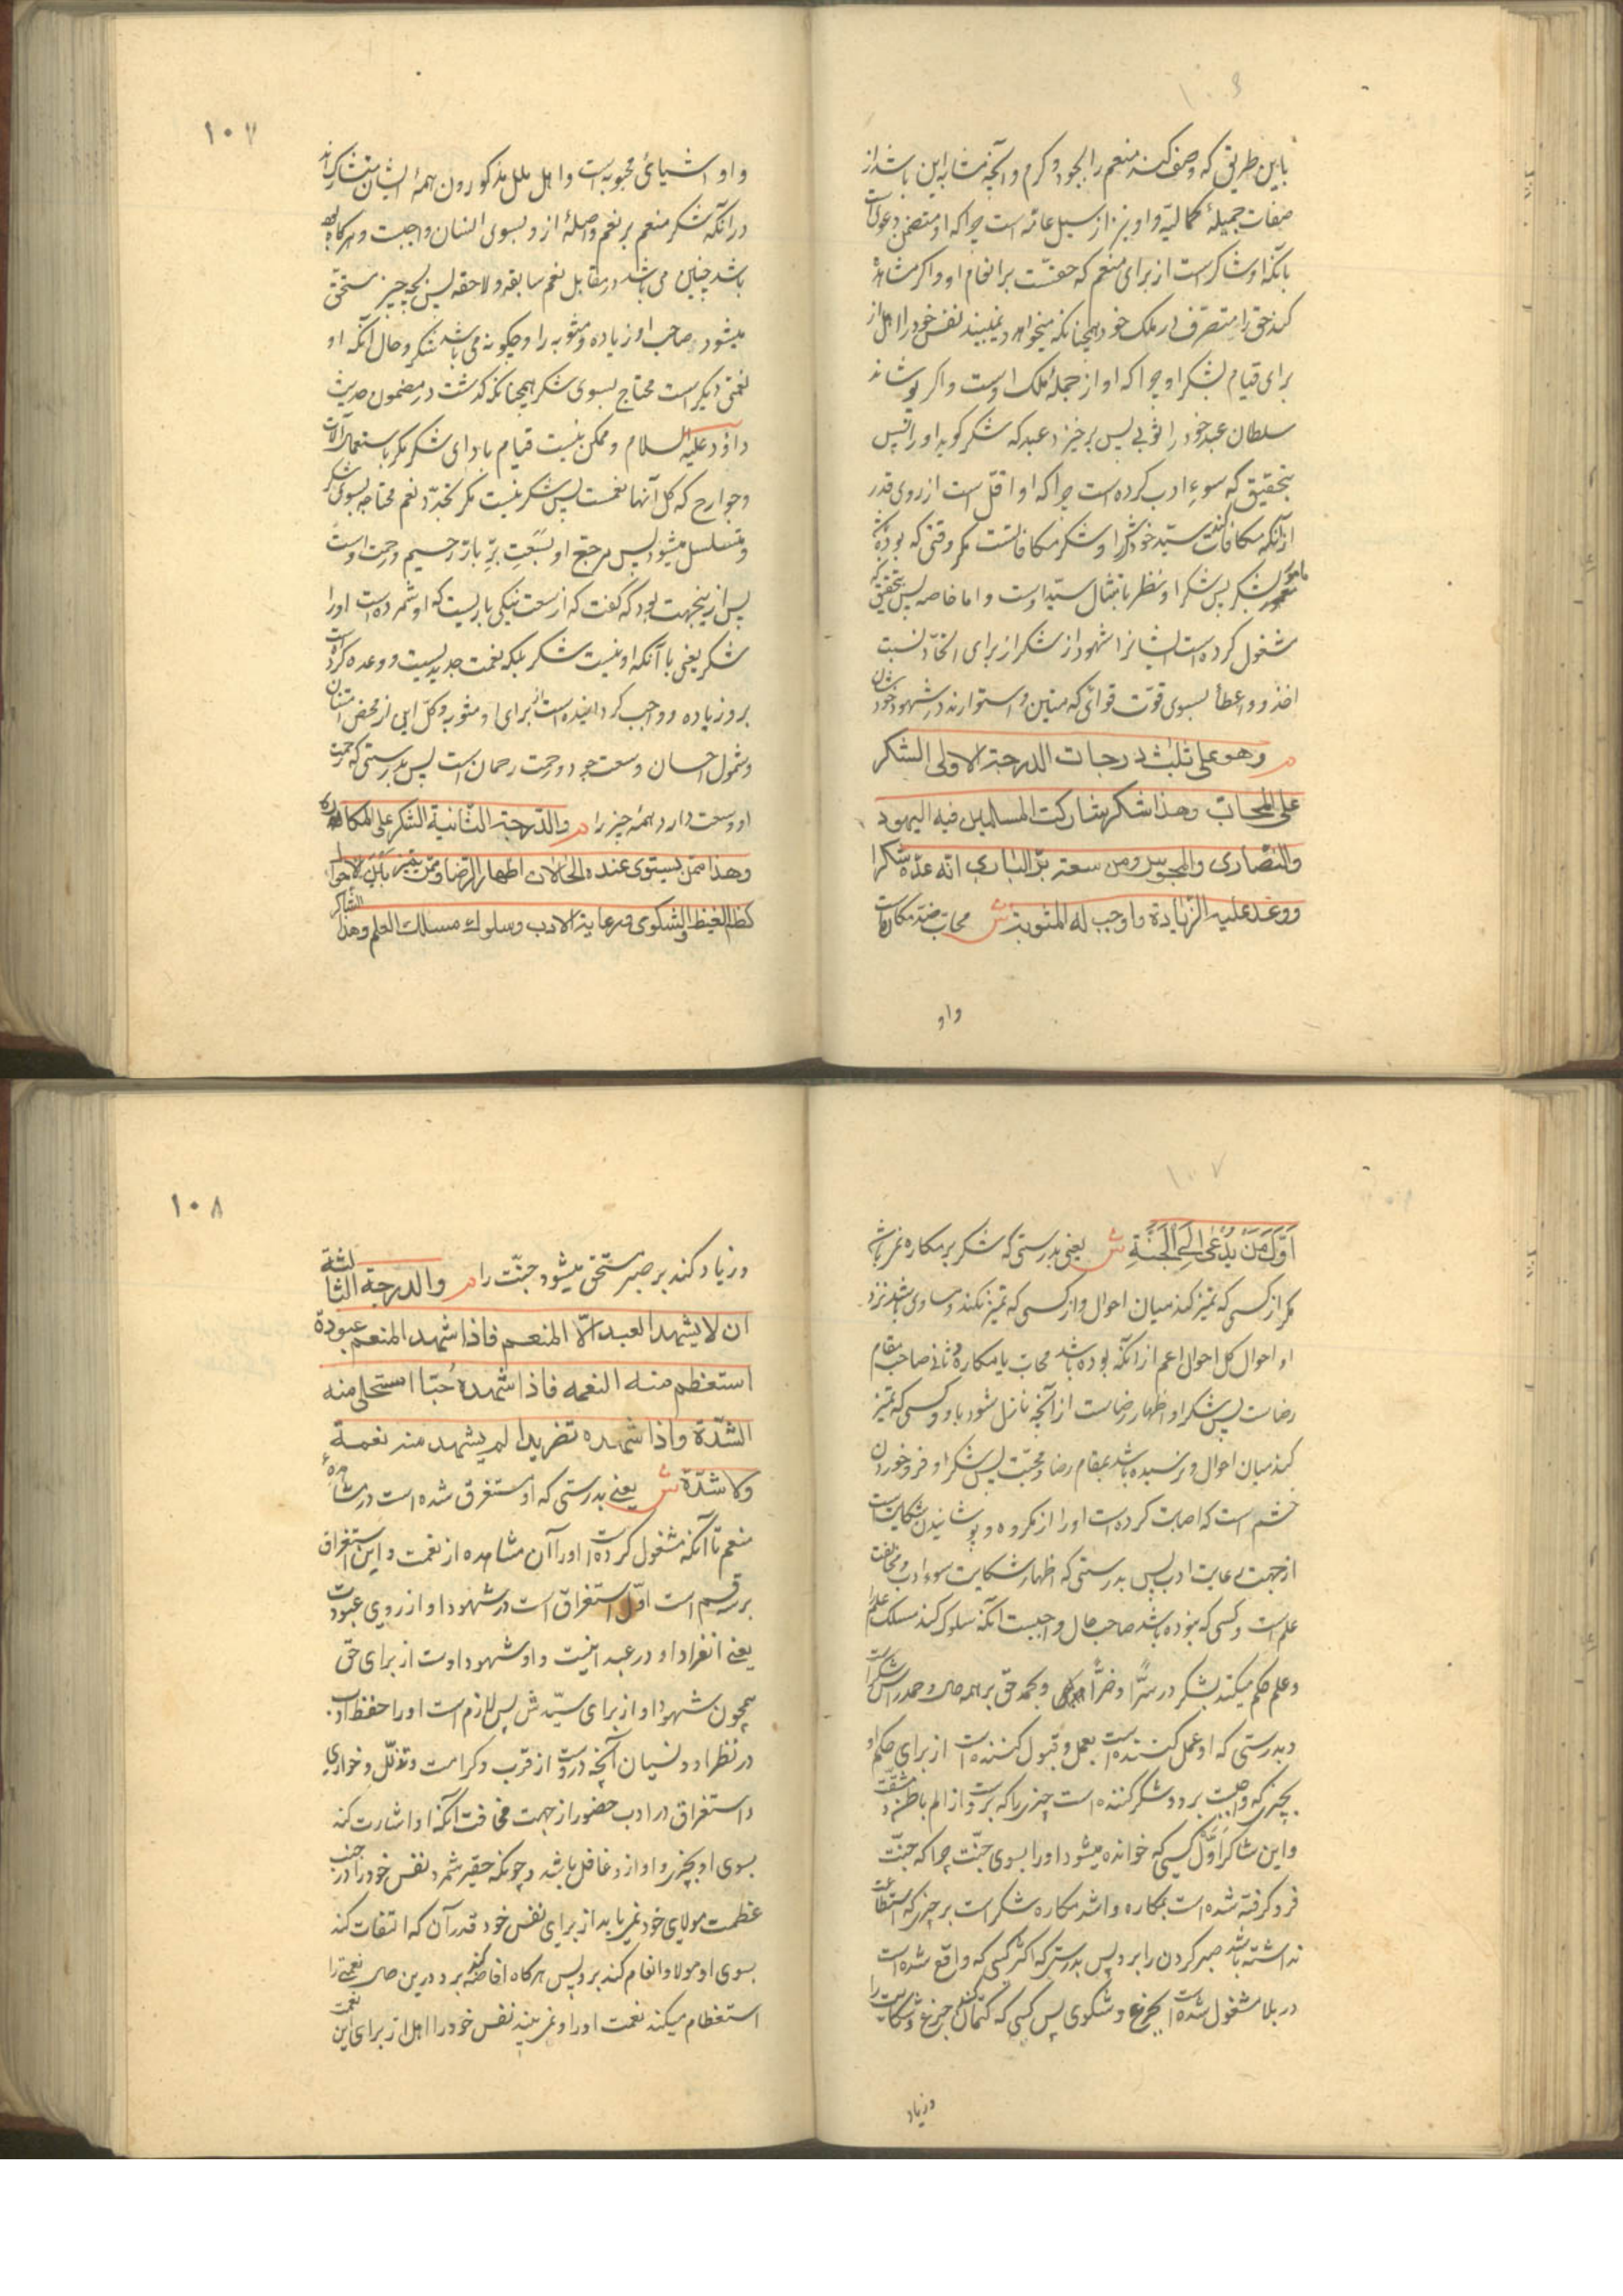 باین طریق که وصف کند منعم را بجود و کرم و آنچه مشابه این باشد از
صفات جمیلهٔ کمالیه و او نیز از سبیل عامه است چرا که او متضمن دعوی است
بآنکه او شاکر است از برای منعم که حقست بر انعام او و اگر مشاهده
کند حق را متصرف در ملک خود همچنانکه میخواهد و نمیبیند نفس خود را اهل از
برای قیام بشکر او چرا که او از جملهٔ ملک اوست و اگر پوشاند
سلطان عبد خود را ثوبی پس برخیزد عبد که شکر گوید او را پس
بتحقیق که سوء ادب کرده است چرا که او اقل است از روی قدر
ازآنکه مکافات کند سید خودش را و شکر مکافاتست مگر وقتی که بوده باشد
مأمور بشکر پس شکر او بنظر بامتثال سید اوست و اما خاصه پس بتحقیق که
مشغول کرده است ایشانرا شهود از شکر از برای اتحاد نسبت
اخذ و اعطا بسوی قوت قوائی که متین و استوارند در شهود خودشان
م وهو علی ثلث درجات الدرجة الاولی الشکر
علی المحاب وهذا شکر شارکت المسلمین فیه الیهود
والنصاری والمجوس ومن سعة بر الباری انه عده شکرا
ووعد علیه الزیادة واوجب له المثوبة ش محاب ضد مکاره است
واو
۱۰۷
و او اشیائ محبوبه است و اهل ملل مذکورون همهٔ ایشان متشارک اند
در آنکه شکر منعم بر نعم واصلهٔ از و بسوی انسان واجبت و هرگاه
باشد چنین می باشد در مقابل نعم سابقه و لاحقه پس بچه چیز مستحق
میشود صاحب او زیاده و مثوبه را و چگونه می باشد شکر و حال آنکه او
نعمتی دیگر است محتاج بسوی شکر همچنانکه گذشت در مضمون حدیث
داود علیه السلام و ممکن نیست قیام بادای شکر مگر باستعمال آلات
و جوارح که کل آنها نعمست پس شکر نیست مگر تجدد نعم محتاجه بسوی شکر
و متسلسل میشود پس مرجع او بسعت بر بار رحیم و رحمت اوست
پس ازینجهت بود که گفت که از سعت نیکی باریست که او شمرده است او را
شکر یعنی با آنکه او نیست شکر بلکه نعمت جدیدیست و وعده کرده است
برو زیاده و واجب گردانیده است از برای او مثوبه و کل این از محض امتنان
و شمول احسان و سعت جود و رحمت رحمان است پس بدرستی که رحمت
او وسعت دارد همه چیز را م والدرجة الثانیة الشکر علی المکاره
وهذا ممن یستوی عنده الحالات اظهار الرضا وممن یمیز بین الاحوال
کظم الغیظ والشکوی ورعایة الادب وسلوک مسلک العلم وهذا الشاکر
۱۰۷
اول من یدعی الی الجنة ش یعنی بدرستی که شکر بر مکاره نمی باشد
مگر از کسی که تمیز کند میان احوال و از کسی که تمیز نکند و مساوی باشد نزد
او احوال کل احوال اعم ازآنکه بوده باشد محاب یا مکاره و ثانی صاحب مقام
رضاست پس شکر او اظهار رضاست از آنچه نازل شود باو و کسی که تمیز
کند میان احوال و نرسیده باشد بمقام رضا و محبت پس شکر او فرو خوردن
خشم است که اصابت کرده است او را از مکروه و پوشانیدن شکایت است
از جهت رعایت ادب پس بدرستی که اظهار شکایت سوء ادب و مخالفت
علم است و کسی که نبوده باشد صاحب حال واجبست آنکه سلوک کند مسلک علم را
و علم حکم میکند بشکر در سرا و ضرا و بحمد حق بر همه حال و حمد رأس شکر است
و بدرستی که او عمل کننده است بعمل و قبول کننده است از برای حکم او
بچیزی که واجبست برو و شکر کننده است چیزی را که برست از الم باطن و مشقت
و این شاکر اول کسی که خوانده میشود او را بسوی جنت چرا که جنت
فرو گرفته شده است بمکاره و اشد مکاره شکر است بر چیزی که استطاعت
نداشته باشد صبر کردن را برو پس بدرستی که اکثر کسی که واقع شده است
در بلا مشغول شده است بجزع و شکوی پس کسی که کتمان کند جزع و شکایت را
وزیاد
۱۰۸
وزیاد کند بر صبر مستحق میشود جنت را م والدرجة الثالثة
ان لا یشهد العبد الا المنعم فاذا شهد المنعم عبودة
استعظم منه النعمه فاذا شهده حبا استحلی منه
الشدة واذا شهده تفریدا لم یشهد منه نعمة
ولا شدة ش یعنی بدرستی که او مستغرق شده است در مشاهدهٔ
منعم تا آنکه مشغول کرده است او را آن مشاهده از نعمت و این استغراق
بر سه قسم است اول استغراق است در شهود او از روی عبودت
یعنی انفراد او در عبدانیت و او شهود اوست از برای حق
همچون شهود او از برای سیدش پس لازم است او را حفظ ادب
در نظر او و نسیان آنچه دروست از قرب و کرامت و تذلل و خواری
و استغراق در ادب حضور از جهت مخافت آنکه او اشارت کند
بسوی او بچیزی و او ازو غافل باشد و چونکه حقیر شمرد نفس خود را در جنب
عظمت مولای خود نمی یابد از برای نفس خود قدر آن که التفات کند
بسوی او مولا و انعام کند برو پس هرگاه افاضه کند برو درین حال نعمتی را
استعظام میکند نعمت او را و نمی بیند نفس خود را اهل از برای این نعمت